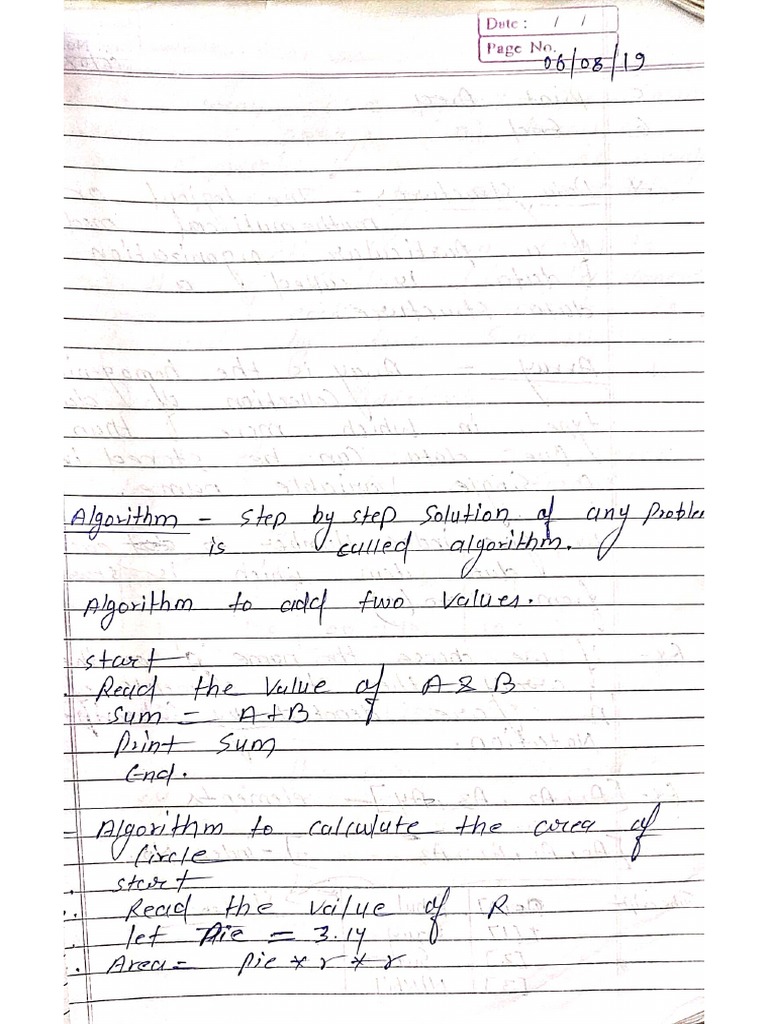 Date : / /
Page No.
06/08/19
Algorithm - step by step solution of any Proble
is called algorithm.
Algorithm to add two values.
start
Read the value of A & B
Sum = A+B
Print Sum
End.
Algorithm to calculate the area of
Circle
start
Read the value of R
let Pie = 3.14
Area = Pie * r * r